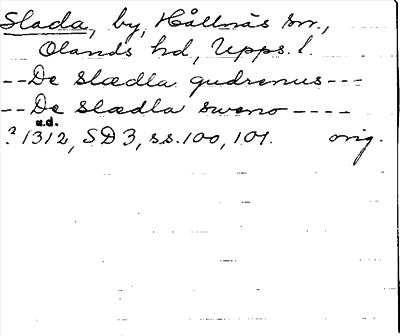 Slada, by, Hållnäs sn.,
Olands hd, Upps. l.
-- De Slædla gudrenus ---
-- De Slædla sweno ----
a.d.
? 1312, SD 3, ss. 100, 101. orig.